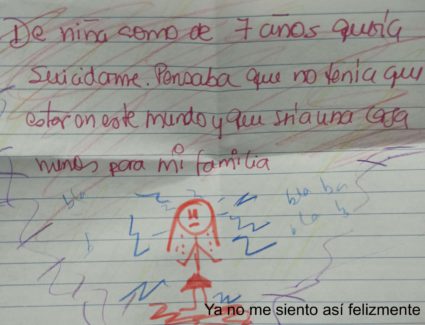 De niña como de 7 años queria
Suicidarme. Pensaba que no tenia que
estar en este mundo y que sria una carga
menos para mi familia
bla
bla bla
bla b
Ya no me siento así felizmente